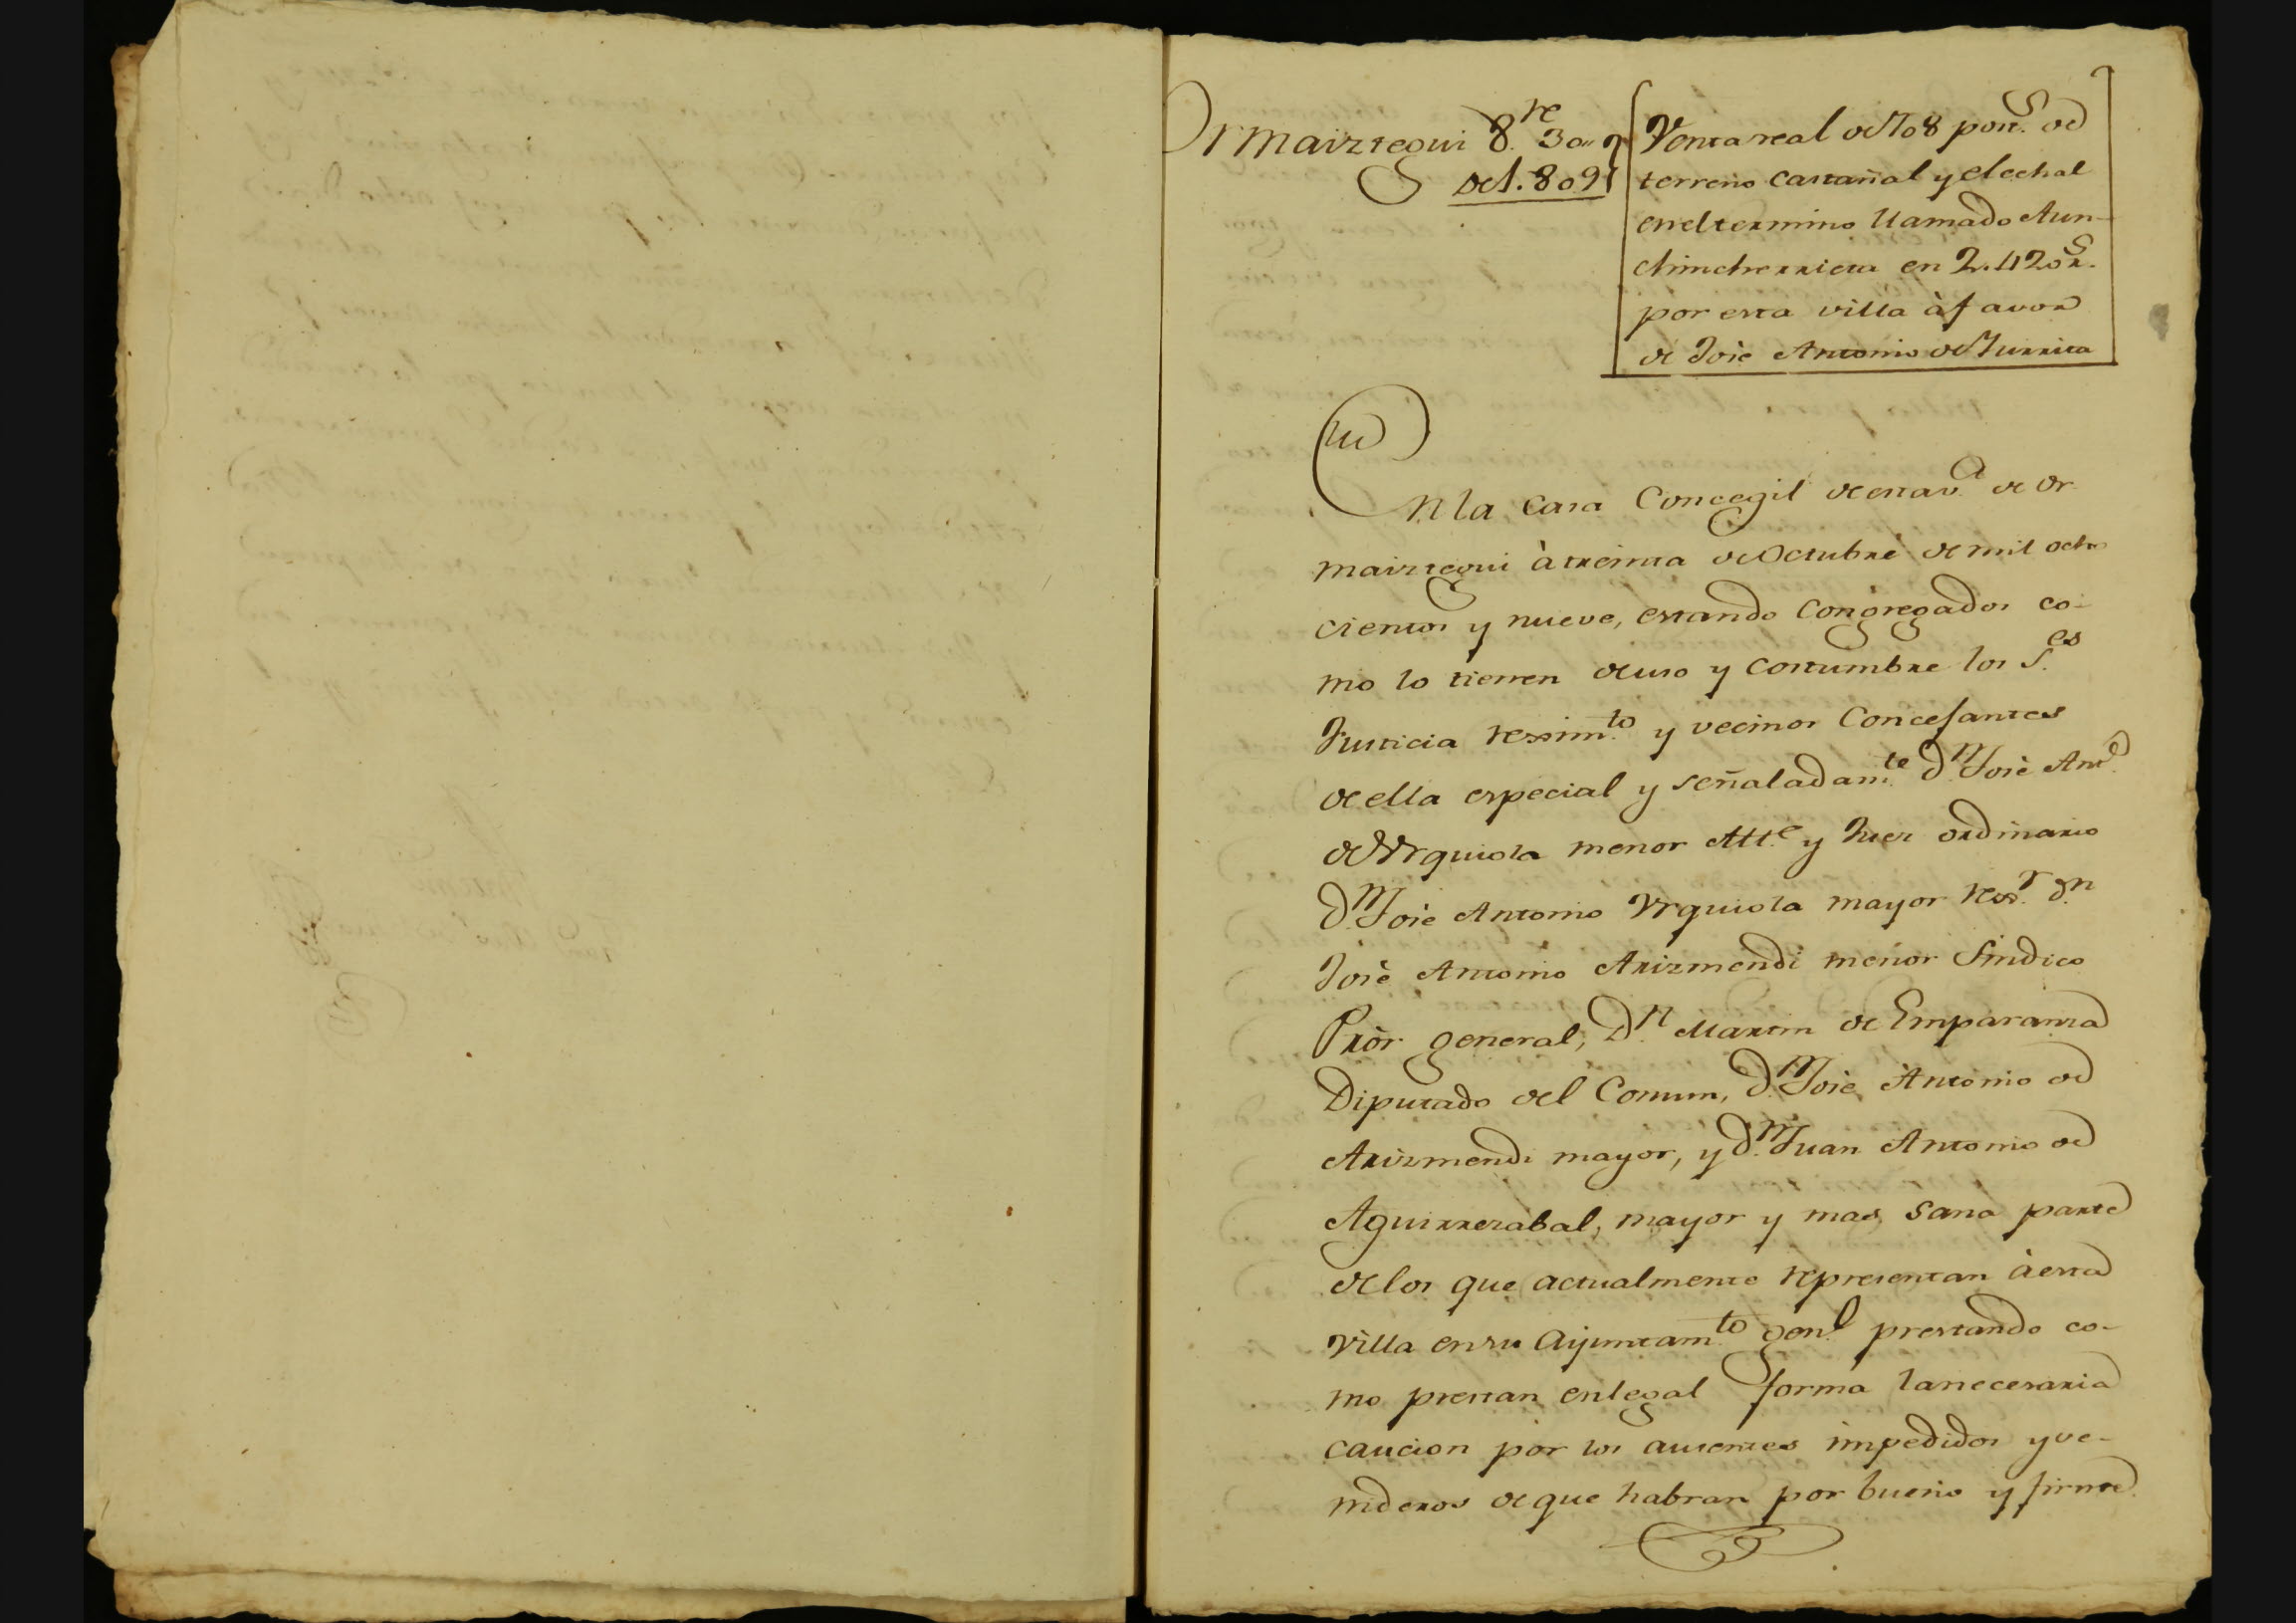 Ormaiztegui 8.re 30,,
de 1.809
Venta real de 708 post.s de
terreno castañal y elechal
en el termino llamado Aun-
chincherrieta en 2.420 r.s
por esta villa à favor
de Josè Antonio de Iturrita
En la Casa Concegil de esta v.a de Or-
maiztegui à treinta de Octubre de mil ocho
cientos y nueve, estando congregados co-
mo lo tienen de uso y costumbre los S.es
Justicia reximt.to y vecinos Concejantes
de ella especial y señaladam.te d.n Josè Ant.o
de Vrquiola menor Alt.e y Juez ordinario
d.n Josè Antonio Vrquiola mayor rex.r d.n
Josè Antonio Arizmendi menor Sindico
Prõr general, D.n Martin de Emparanza
Diputado del Comun, d.n Josè Antonio de
Arizmendi mayor, y d.n Juan Antonio de
Aguirrezabal, mayor y mas sana parte
de los que actualmente representan à esta
villa en su Aijuntam.to gen.l prestando co-
mo prestan en legal forma la necesaria
caucion por los ausentes impedidos y ve-
nideros de que habran por bueno y firme